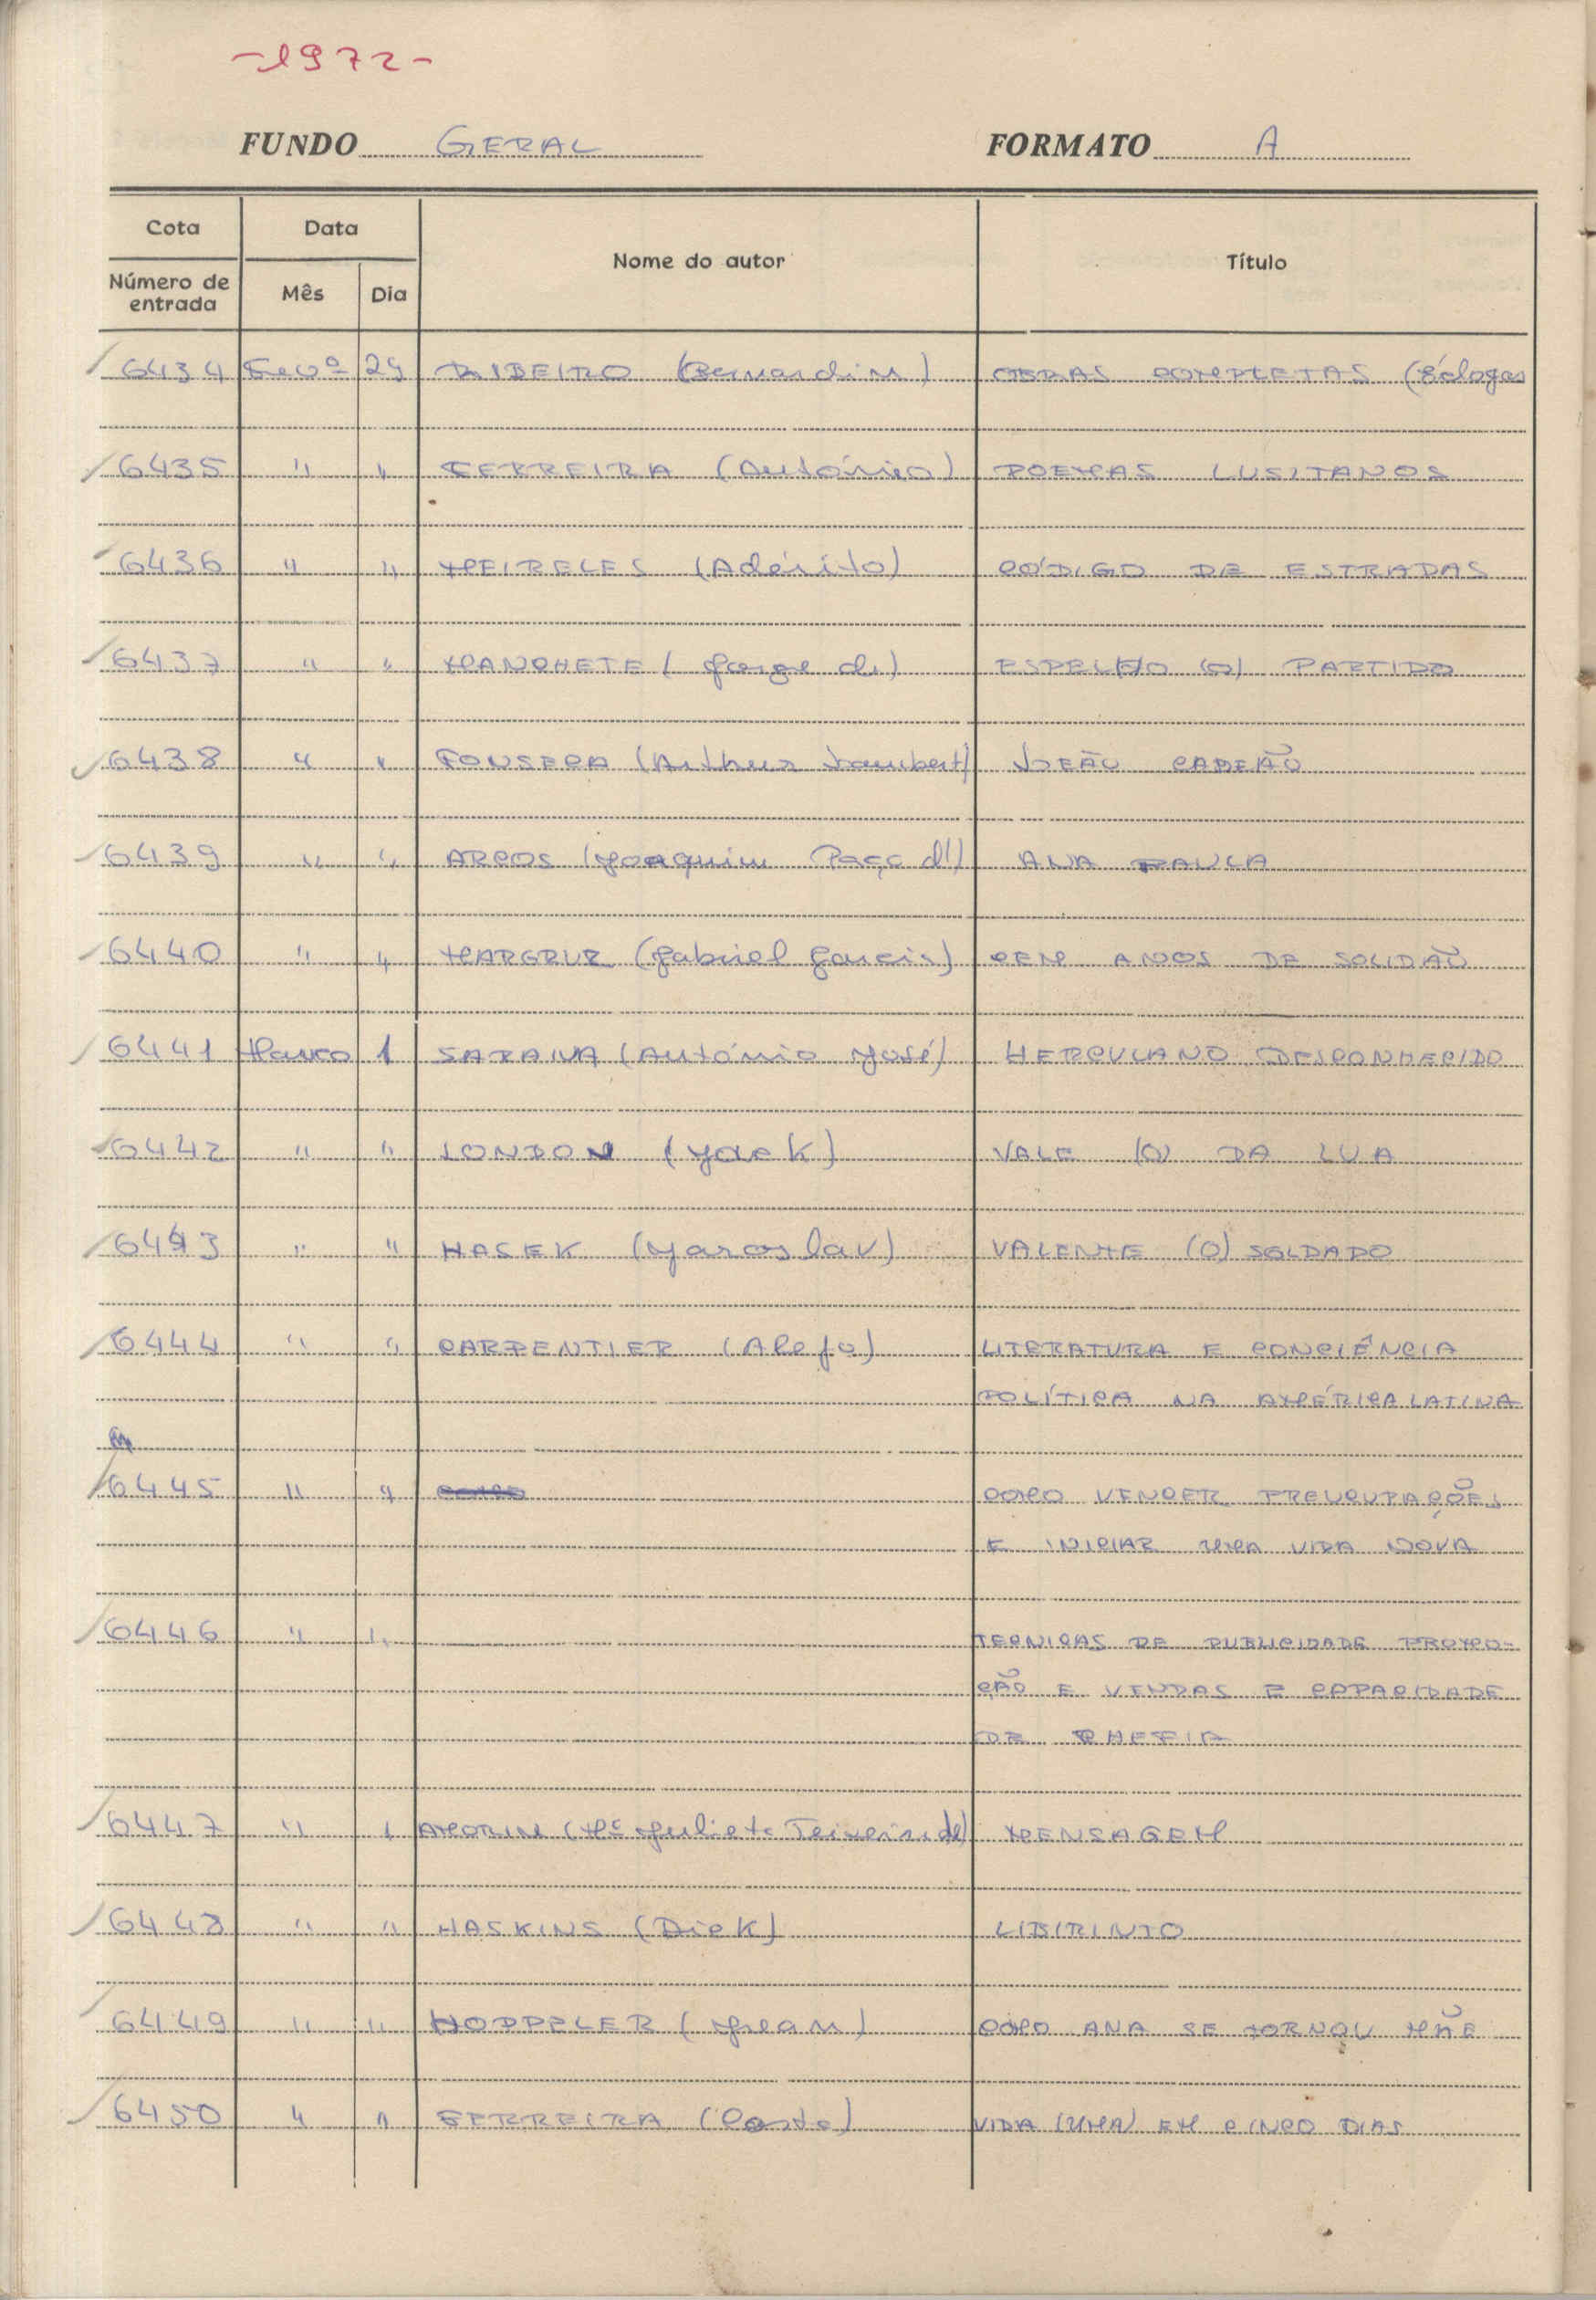 -1972-
FUNDO GERAL FORMATO A
Cota Data Nome do autor Título
Número de entrada Mês Dia
6434 Fevº 29 RIBEIRO (Bernardim) OBRAS COMPLETAS (Éclogas
6435 " " FERREIRA (António) POEMAS LUSITANOS
6436 " " MEIRELES (Adérito) CÓDIGO DE ESTRADAS
6437 " " MANCHETE (Jorge de) ESPELHO (O) PARTIDO
6438 " " FONSECA (Arthur Lambert) JOEÃO CABEÃO
6439 " " ARCOS (Joaquim Paço d') ANA PAULA
6440 " " MARGRUZ (Gabriel Garcia) CEM ANOS DE SOLIDÃO
6441 Março 1 SARAIVA (António José) HERCULANO DESCONHECIDO
6442 " " LONDON (Jack) VALE (O) DA LUA
6443 " " HASEK (Jaroslav) VALENTE (O) SOLDADO
6444 " " CARPENTIER (Alejo) LITERATURA E CONCIÊNCIA
POLÍTICA NA AMÉRICA LATINA
6445 " " COMO VENCER PREUCUPAÇÕES
E INICIAR UMA VIDA NOVA
6446 " " TECNICAS DE PUBLICIDADE PROMO-
CÃO E VENDAS E CAPACIDADE
DE CHEFIA
6447 " " AMORIM (Mª Julieta Teixeira de) MENSAGEM
6448 " " HASKINS (Dick) LIBIRINTO
6449 " " HOPPELER (Jean) COMO ANA SE TORNOU MÃE
6450 " " FERREIRA (Costa) VIDA (UMA) EM CINCO DIAS